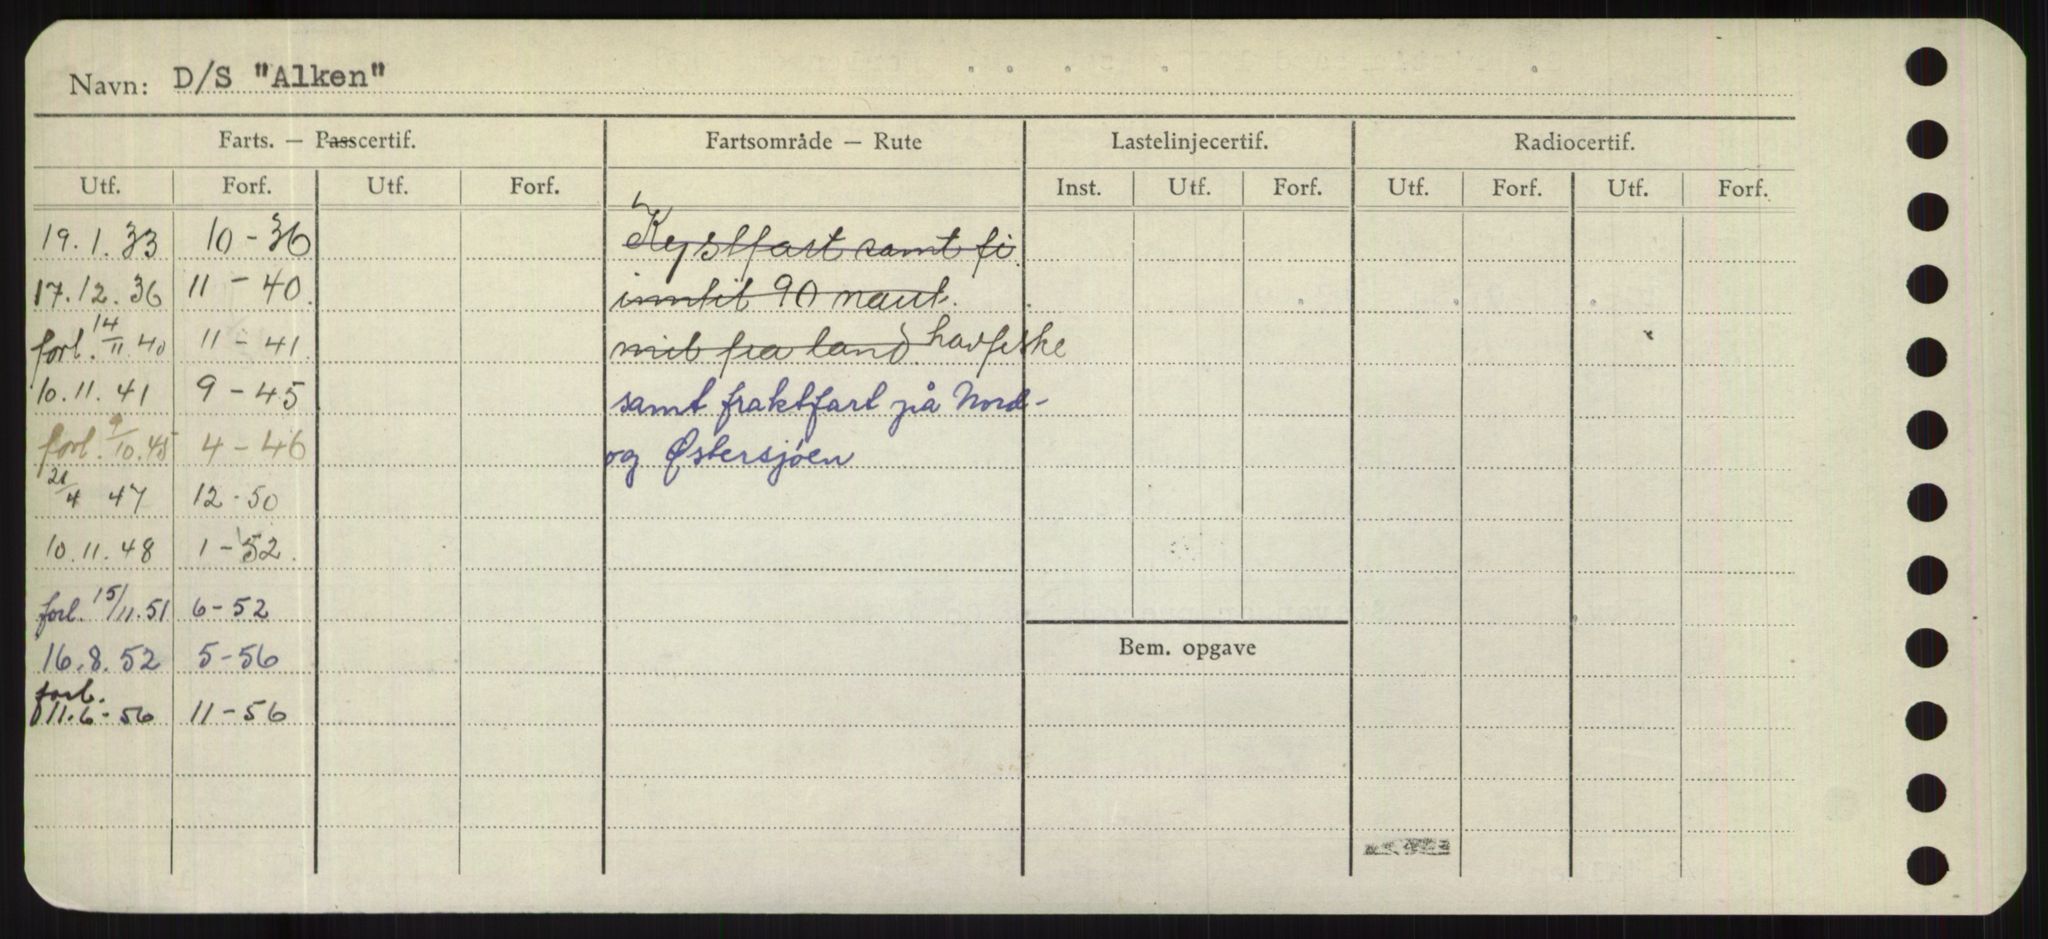 Navn: D/S "Alken"
Farts. — Passcertif. Fartsområde — Rute Lastelinjecertif. Radiocertif.
Utf. Forf. Utf. Forf. Inst. Utf. Forf. Utf. Forf. Utf. Forf.
19.1.33 10-36 Kystfart samt fi
17.12.36 11-40 inntil 90 naut.
forl. 14/11 40 11-41 mil fra land havfiske
10.11.41 9-45 samt fraktfart på Nord-
forl. 9/10.45 4-46 og Østersjøen
21/4 47 12-50
10.11.48 1-52.
forl. 15/11.51 6-52
16.8.52 5-56 Bem. opgave
forl.
11.6-56 11-56